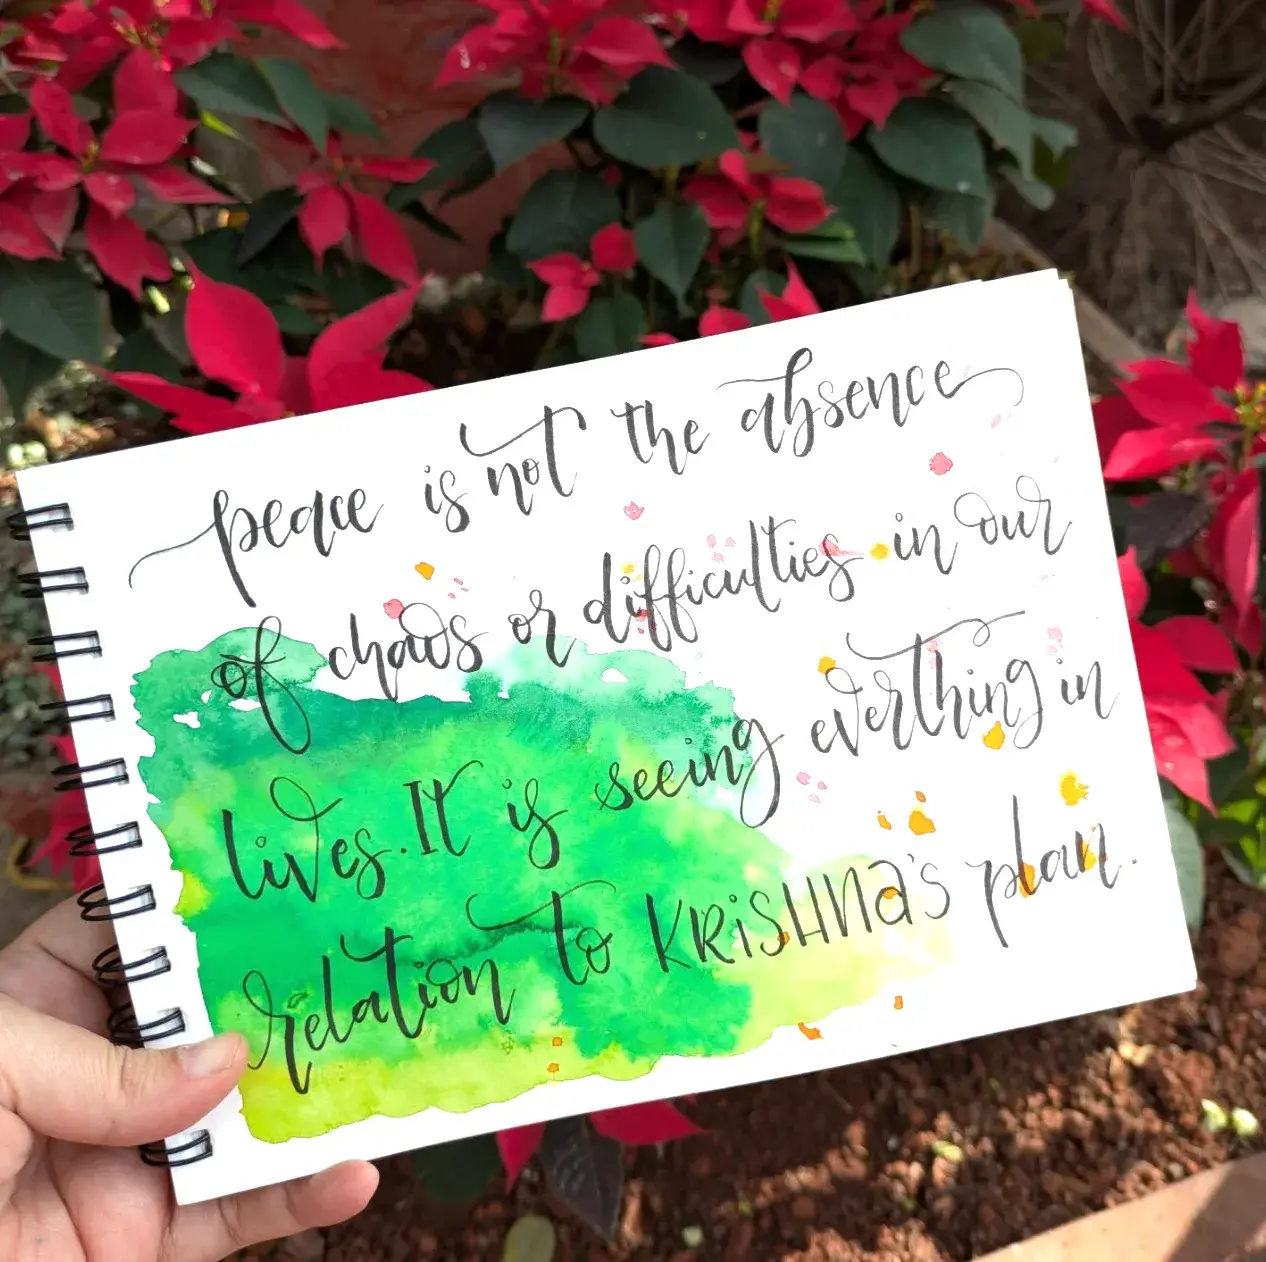 peace is not the absence
of chaos or difficulties in our
lives. It is seeing everthing in
relation to KRiSHNa's plan.